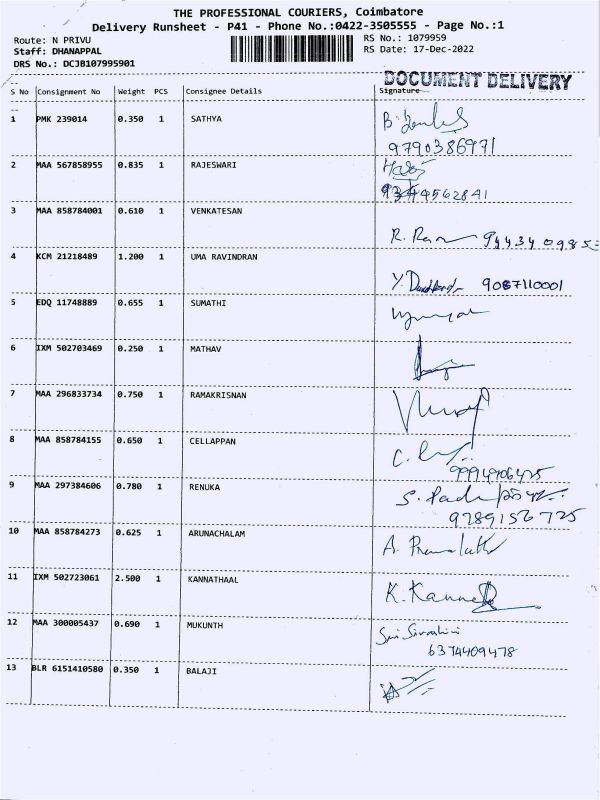 THE PROFESSIONAL COURIERS, Coimbatore
Delivery Runsheet - P41 - Phone No.:0422-3505555 - Page No.:1
Route: N PRIVU
RS No.: 1079959
Staff: DHANAPPAL
RS Date: 17-Dec-2022
DRS No.: DCJB107995901
DOCUMENT DELIVERY
S No Consignment No Weight PCS Consignee Details Signature
1 PMK 239014 0.350 1 SATHYA
9790386971
2 MAA 567858955 0.835 1 RAJESWARI
3 MAA 858784001 0.610 1 VENKATESAN
R.
4 KCM 21218489 1.200 1 UMA RAVINDRAN
Y. 9087110001
5 EDQ 11748889 0.655 1 SUMATHI
6 IXM 502703469 0.250 1 MATHAV
7 MAA 296833734 0.750 1 RAMAKRISNAN
8 MAA 858784155 0.650 1 CELLAPPAN
C.
9994906425
9 MAA 297384606 0.780 1 RENUKA
S.
9789156725
10 MAA 858784273 0.625 1 ARUNACHALAM
A.
11 IXM 502723061 2.500 1 KANNATHAAL
K.
12 MAA 300005437 0.690 1 MUKUNTH
6374409478
13 BLR 6151410580 0.350 1 BALAJI